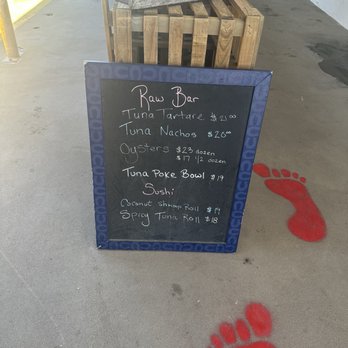 Raw Bar
Tuna Tartare $21.00
Tuna Nachos $20.00
Oysters $23 dozen
$17 1/2 dozen
Tuna Poke Bowl $19
Sushi
Coconut Shrimp Roll $19
Spicy Tuna Roll $18